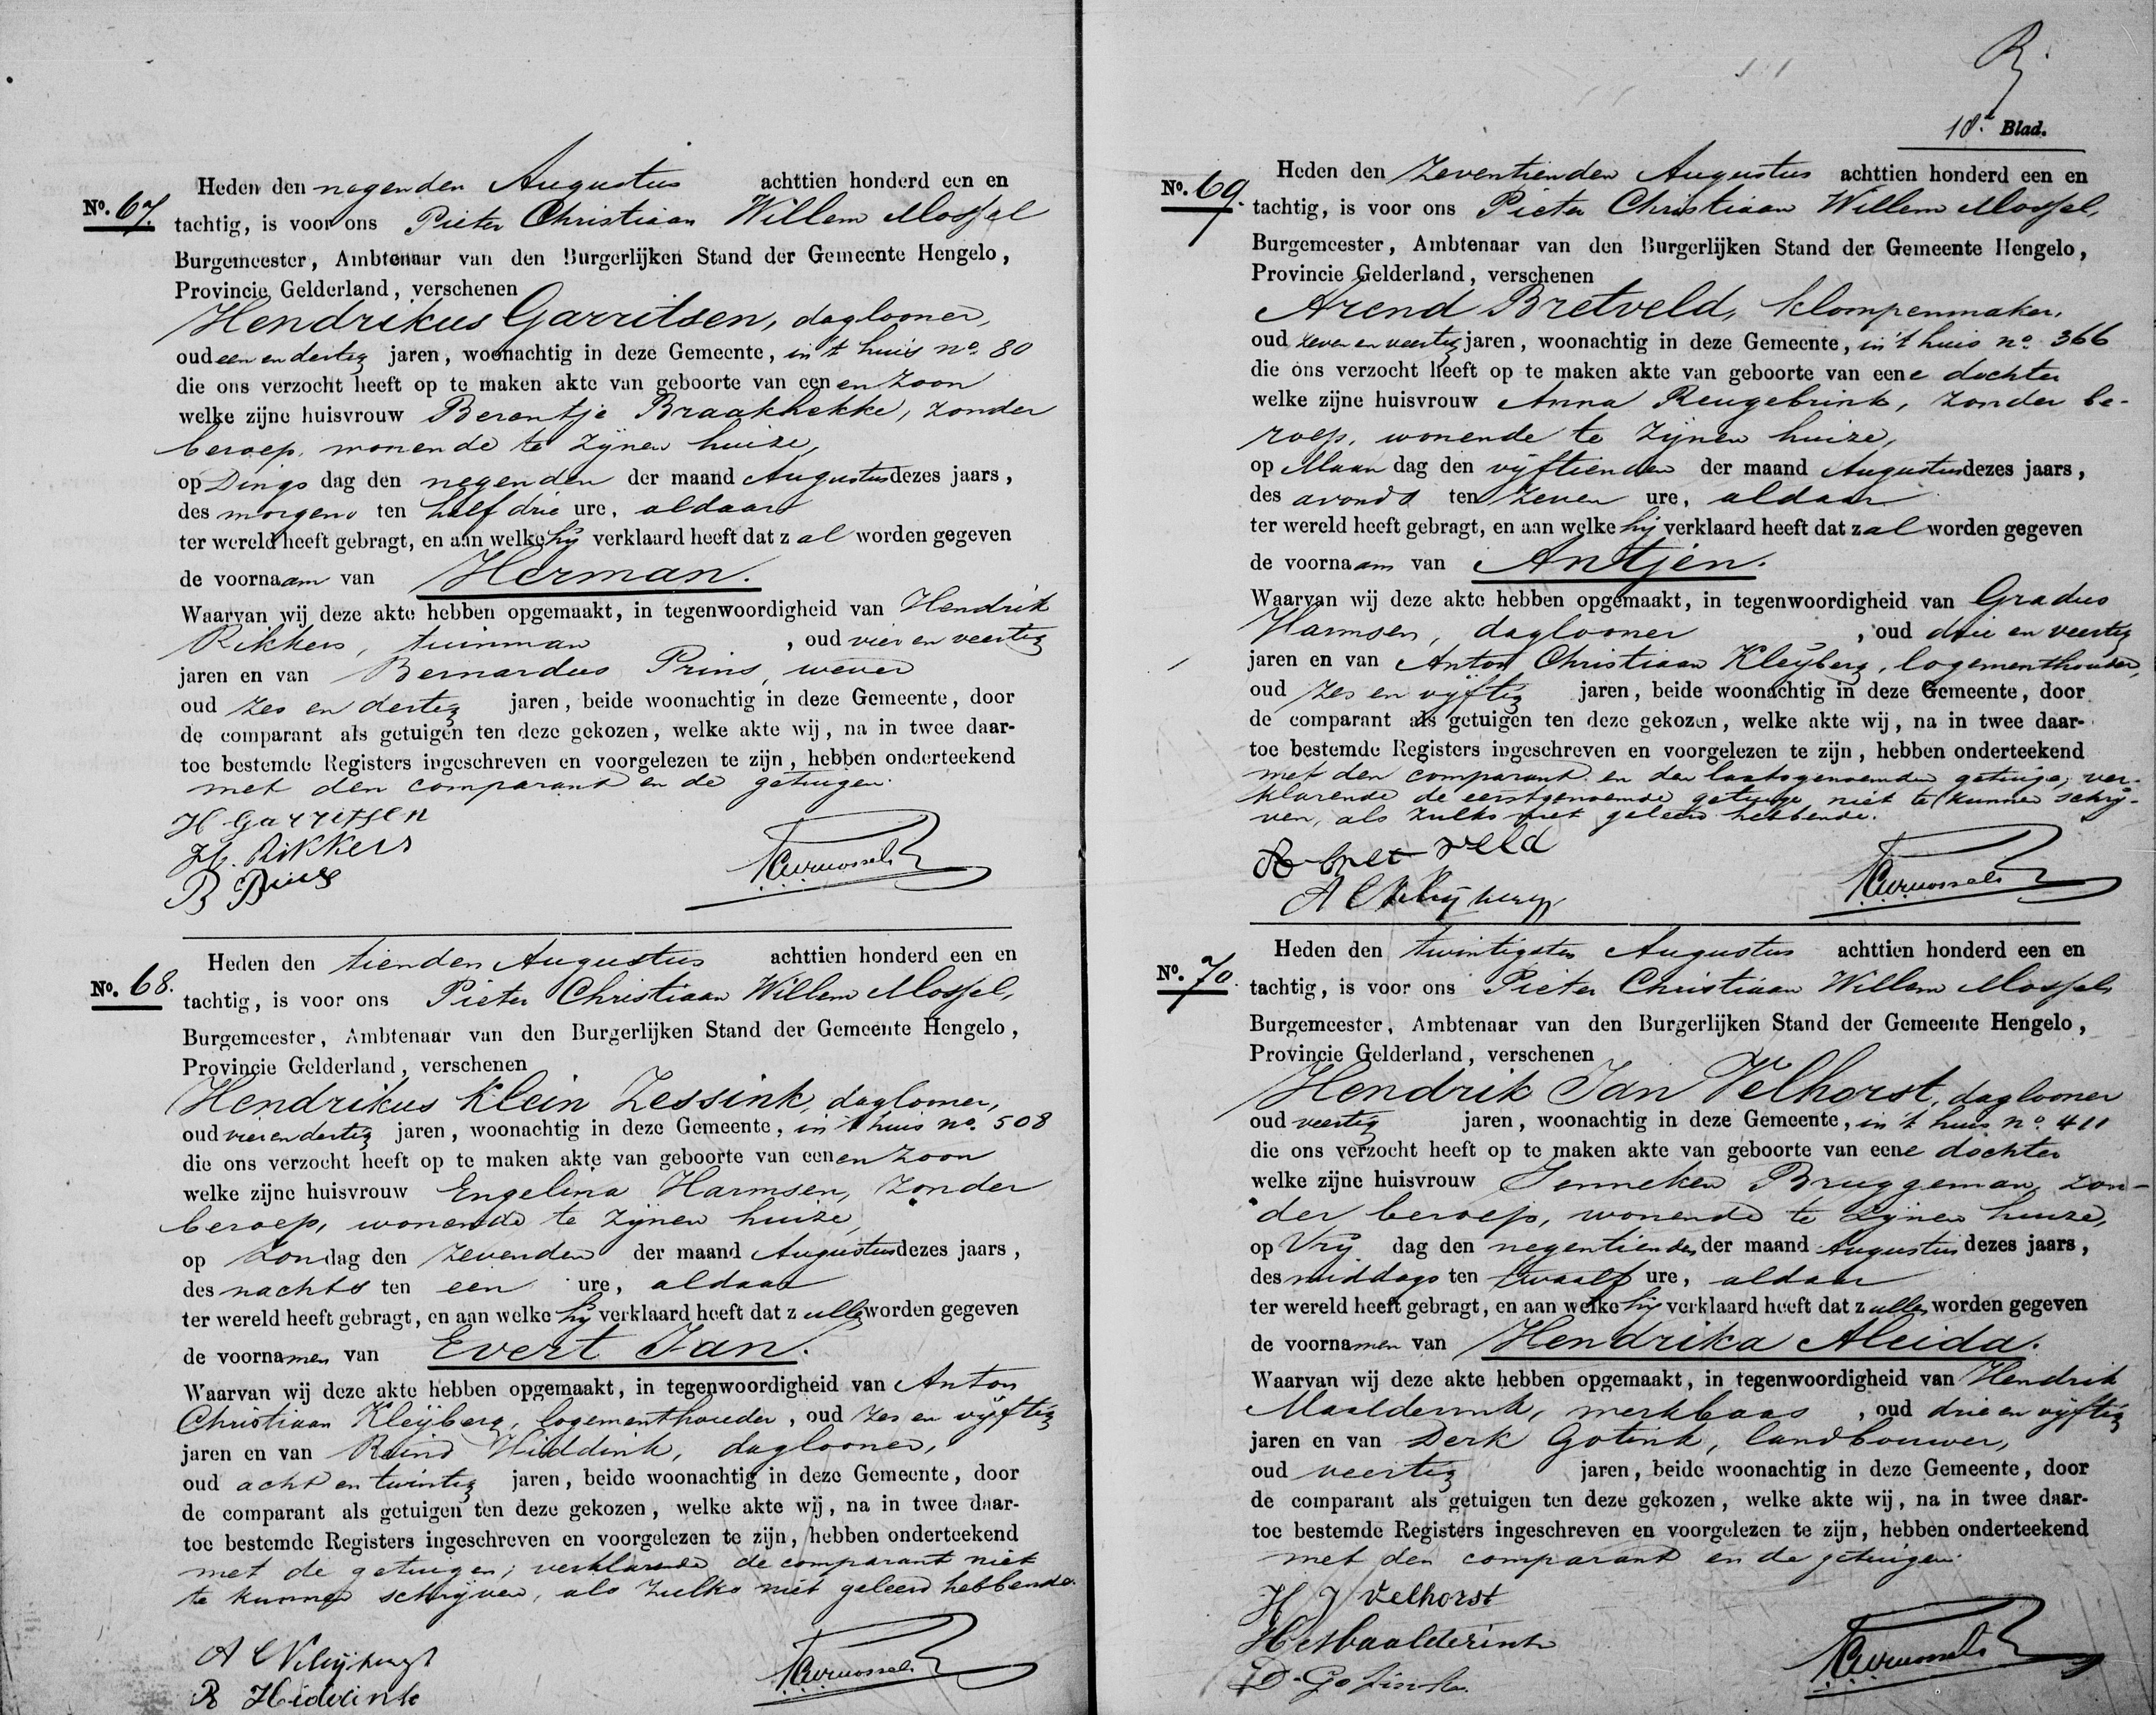 Heden den negenden Augustus achttien honderd een en
No. 67. tachtig, is voor ons Pieter Christiaan Willem Mossel
Burgemeester, Ambtenaar van den Burgerlijken Stand der Gemeente Hengelo,
Provincie Gelderland, verschenen
Hendrikus Garritsen, daglooner,
oud een en dertig jaren, woonachtig in deze Gemeente, in 't huis no. 80
die ons verzocht heeft op te maken akte van geboorte van een en zoon
welke zijne huisvrouw Berentje Braakhekke, zonder
beroep, wonende te zijnen huize,
op Dings dag den negenden der maand Augustus dezes jaars,
des morgens ten half drie ure, aldaar
ter wereld heeft gebragt, en aan welke hij verklaard heeft dat z al worden gegeven
de voornaam van Herman.
Waarvan wij deze akte hebben opgemaakt, in tegenwoordigheid van Hendrik
Rikkers, tuinman, oud vier en veertig
jaren en van Bernardus Prins, wever
oud zes en dertig jaren, beide woonachtig in deze Gemeente, door
de comparant als getuigen ten deze gekozen, welke akte wij, na in twee daar-
toe bestemde Registers ingeschreven en voorgelezen te zijn, hebben onderteekend
met den comparant en de getuigen.
H Garritsen
H. Rikkers
B Prins
Heden den tienden Augustus achttien honderd een en
No. 68. tachtig, is voor ons Pieter Christiaan Willem Mossel,
Burgemeester, Ambtenaar van den Burgerlijken Stand der Gemeente Hengelo,
Provincie Gelderland, verschenen
Hendrikus Klein Lessink, daglooner,
oud vier en dertig jaren, woonachtig in deze Gemeente, in 't huis no. 508
die ons verzocht heeft op te maken akte van geboorte van eenen zoon
welke zijne huisvrouw Engelina Harmsen, zonder
beroep, wonende te zijnen huize,
op Zondag den zevenden der maand Augustus dezes jaars,
des nachts ten een ure, aldaar
ter wereld heeft gebragt, en aan welke hij verklaard heeft dat z ullen worden gegeven
de voornamen van Evert Jan.
Waarvan wij deze akte hebben opgemaakt, in tegenwoordigheid van Anton
Christiaan Kleijberg, logementhouder, oud zes en vijftig
jaren en van Reind Hiddink, daglooner,
oud acht en twintig jaren, beide woonachtig in deze Gemeente, door
de comparant als getuigen ten deze gekozen, welke akte wij, na in twee daar-
toe bestemde Registers ingeschreven en voorgelezen te zijn, hebben onderteekend
met de getuigen; verklarende de comparant niet
te kunnen schrijven, als zulks niet geleerd hebbende.
A C Kleijberg
R Hiddink
18e Blad.
Heden den zeventienden Augustus achttien honderd een en
No. 69. tachtig, is voor ons Pieter Christiaan Willem Mossel,
Burgemeester, Ambtenaar van den Burgerlijken Stand der Gemeente Hengelo,
Provincie Gelderland, verschenen
Arend Bretveld, klompenmaker,
oud zeven en veertig jaren, woonachtig in deze Gemeente, in 't huis no. 366
die ons verzocht heeft op te maken akte van geboorte van eene dochter
welke zijne huisvrouw Anna Reugebrink, zonder be-
roep, wonende te zijnen huize,
op Maan dag den vijftienden der maand Augustus dezes jaars,
des avonds ten zeven ure, aldaar
ter wereld heeft gebragt, en aan welke hij verklaard heeft dat zal worden gegeven
de voornaam van Antjen.
Waarvan wij deze akte hebben opgemaakt, in tegenwoordigheid van Gradus
Harmsen, daglooner, oud drie en veertig
jaren en van Anton Christiaan Kleijberg, logementhouder,
oud zes en vijftig jaren, beide woonachtig in deze Gemeente, door
de comparant als getuigen ten deze gekozen, welke akte wij, na in twee daar-
toe bestemde Registers ingeschreven en voorgelezen te zijn, hebben onderteekend
met den comparant en den laatstgenoemden getuige; ver-
klarende de eerstgenoemde getuige niet te kunnen schrij-
ven, als zulks niet geleerd hebbende.
A Bret veld
A C Kleijberg
Heden den twintigsten Augustus achttien honderd een en
No. 70. tachtig, is voor ons Pieter Christiaan Willem Mossel,
Burgemeester, Ambtenaar van den Burgerlijken Stand der Gemeente Hengelo,
Provincie Gelderland, verschenen
Hendrik Jan Velhorst, daglooner
oud veertig jaren, woonachtig in deze Gemeente, in 't huis no. 411
die ons verzocht heeft op te maken akte van geboorte van eene dochter
welke zijne huisvrouw Jenneken Bruggeman, zon-
der beroep, wonende te zijnen huize,
op Vrij dag den negentienden der maand Augustus dezes jaars,
des middags ten twaalf ure, aldaar
ter wereld heeft gebragt, en aan welke hij verklaard heeft dat z ullen worden gegeven
de voornamen van Hendrika Aleida.
Waarvan wij deze akte hebben opgemaakt, in tegenwoordigheid van Hendrik
Maalderink, werkbaas, oud drie en vijftig
jaren en van Derk Gotink, landbouwer,
oud veertig jaren, beide woonachtig in deze Gemeente, door
de comparant als getuigen ten deze gekozen, welke akte wij, na in twee daar-
toe bestemde Registers ingeschreven en voorgelezen te zijn, hebben onderteekend
met den comparant en de getuigen.
H J Velhorst
H Maalderink
D. Gotink